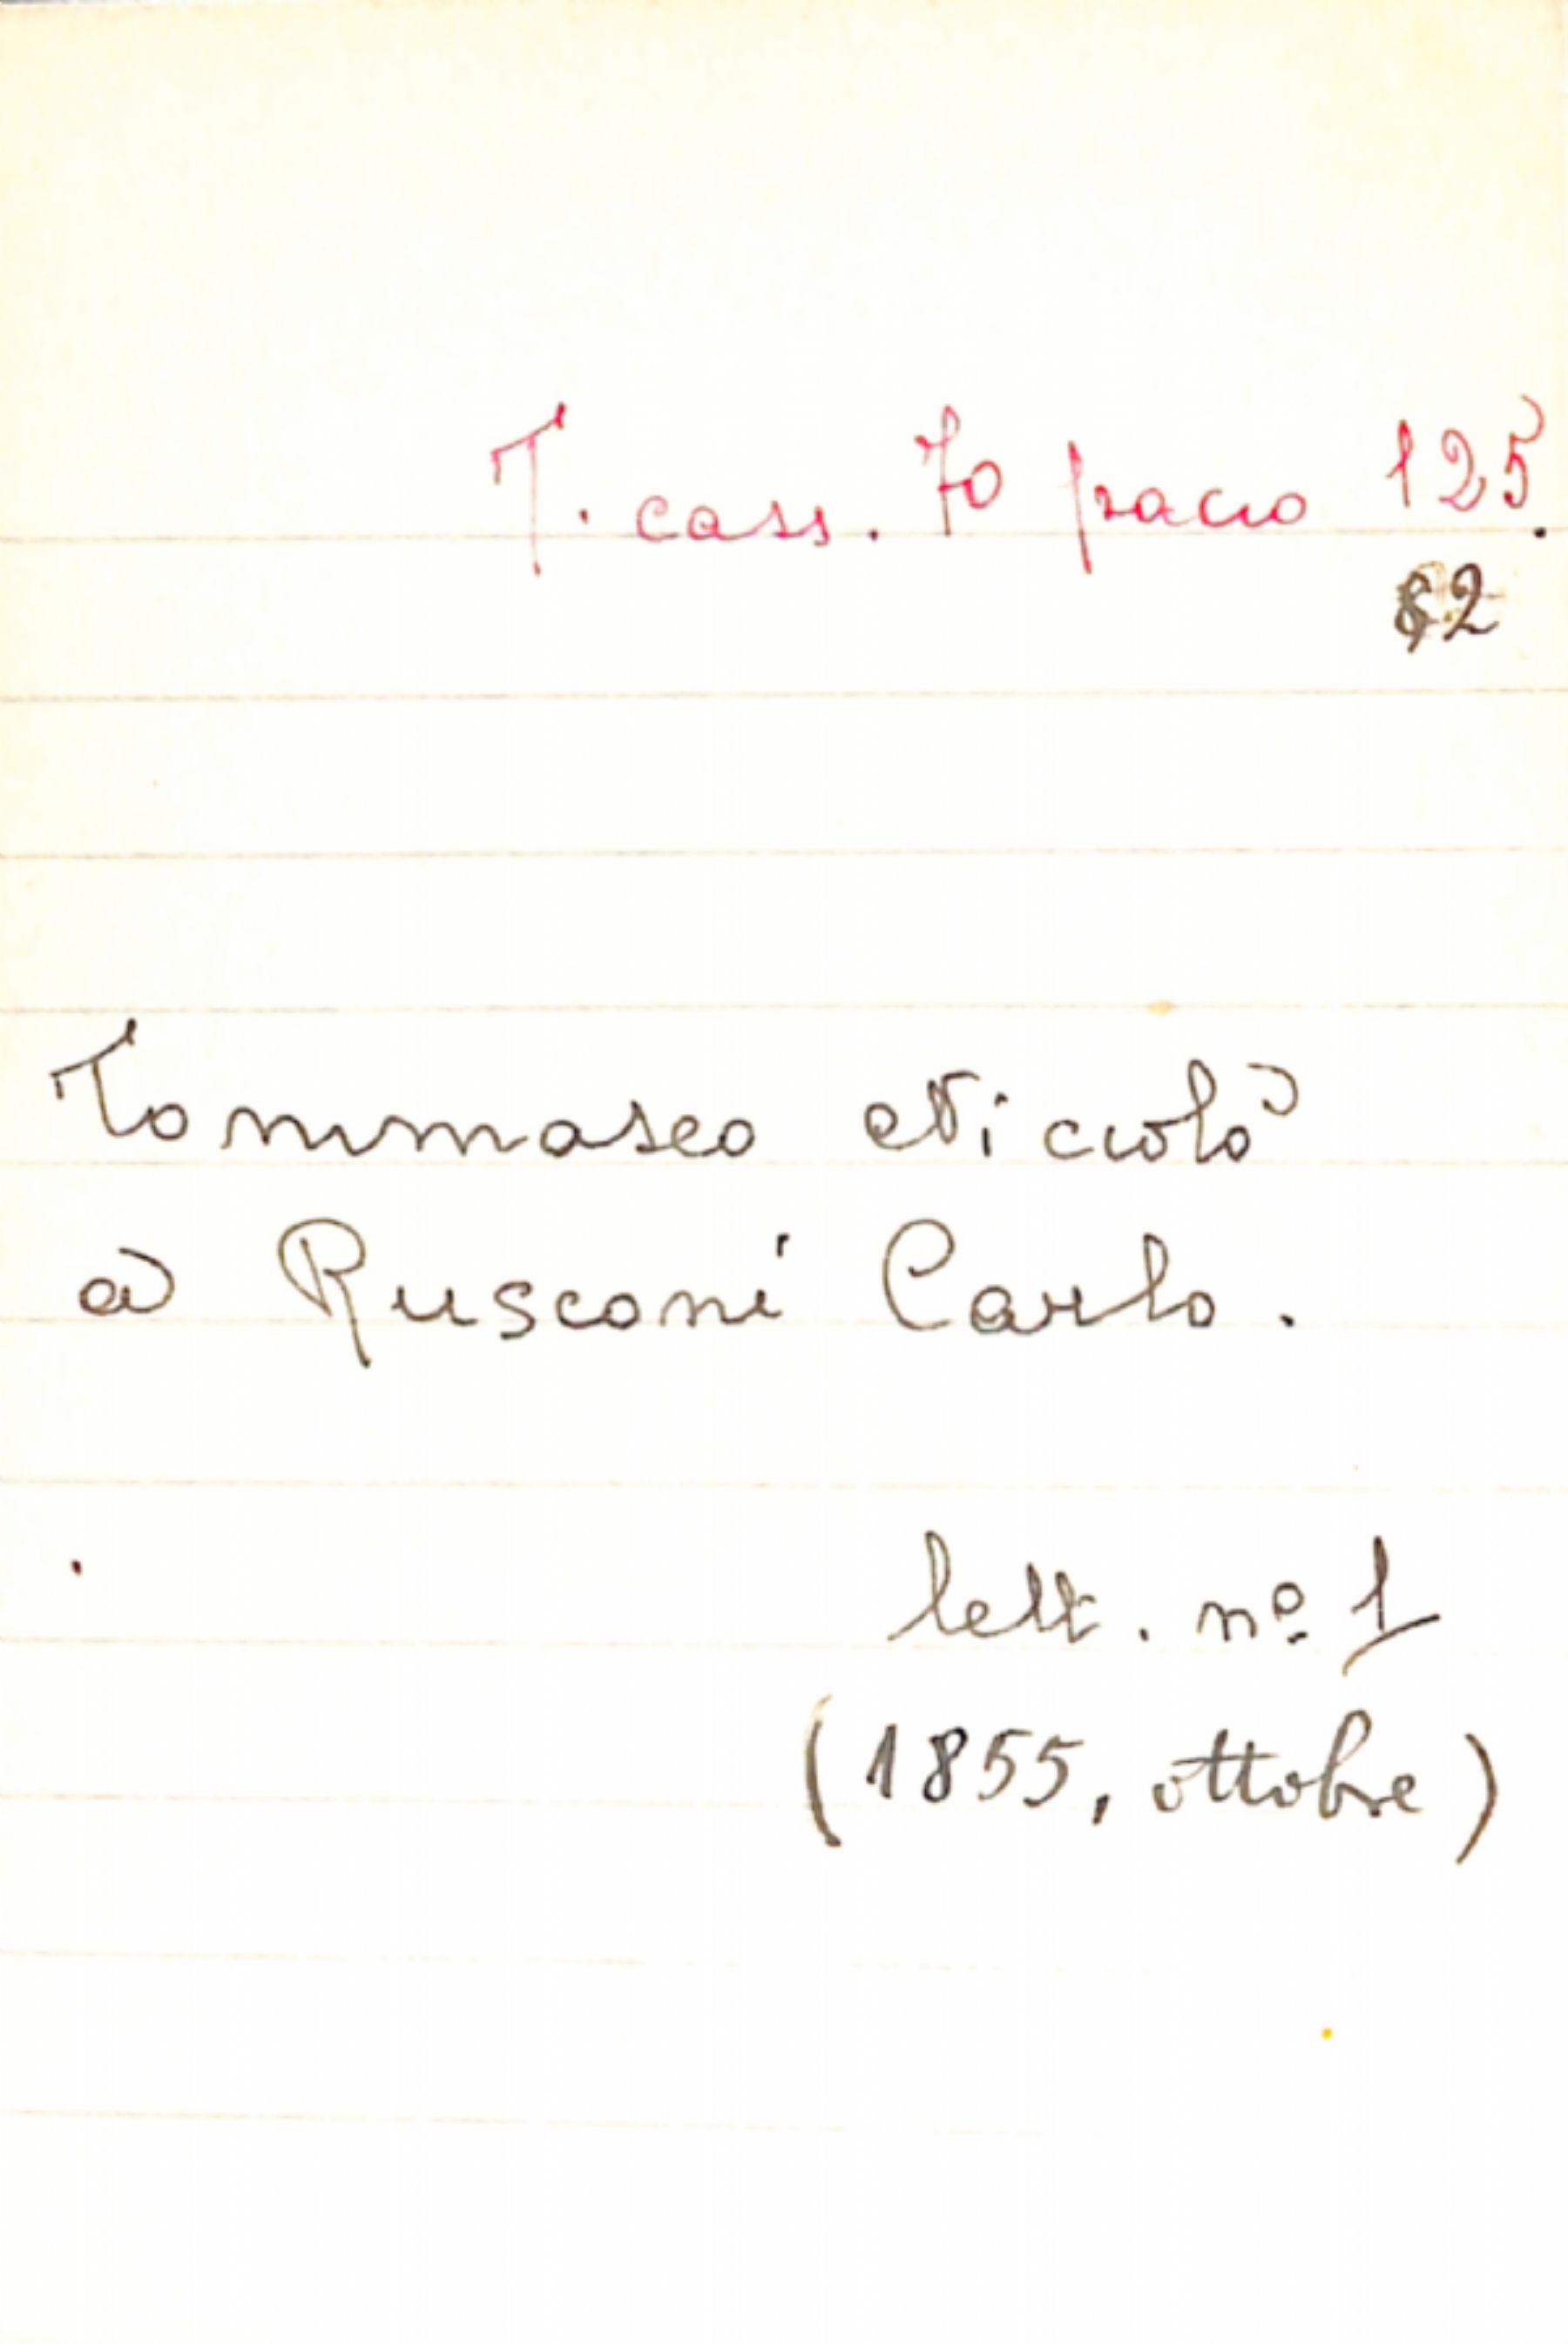 T. cass. 70 pacco 125.
62
Tommaseo Niccolò
a Rusconi Carlo.
lett. nº 1
(1855, ottobre)